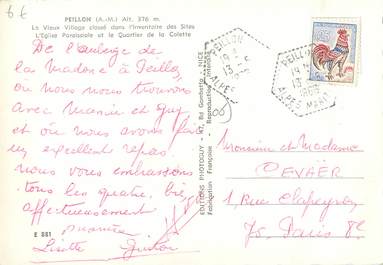 6€
PEILLON (A.-M.) Alt. 376 m.
Le Vieux Village classé dans l'Inventaire des Sites
L'Eglise Paroissiale et le Quartier de la Colette
De l'auberge de
la Madone à Peillon,
où nous nous trouvons
avec Mamie et Guy
et où nous avons fait
un excellent repas
nous vous embrassons
tous les quatre, bien
affectueusement
Lisette
E 881
EDITIONS PHOTOGUY - 47, Bd Gambetta - NICE
Fabrication Française - Reproduction Interdite
06
PEILLON
19 H
13 -5
ALPES
PEILLON
19 H
13 -5
ALPES MARIT
Monsieur et Madame
DEVAËR
1, Rue Clapeyron
75. Paris 8e